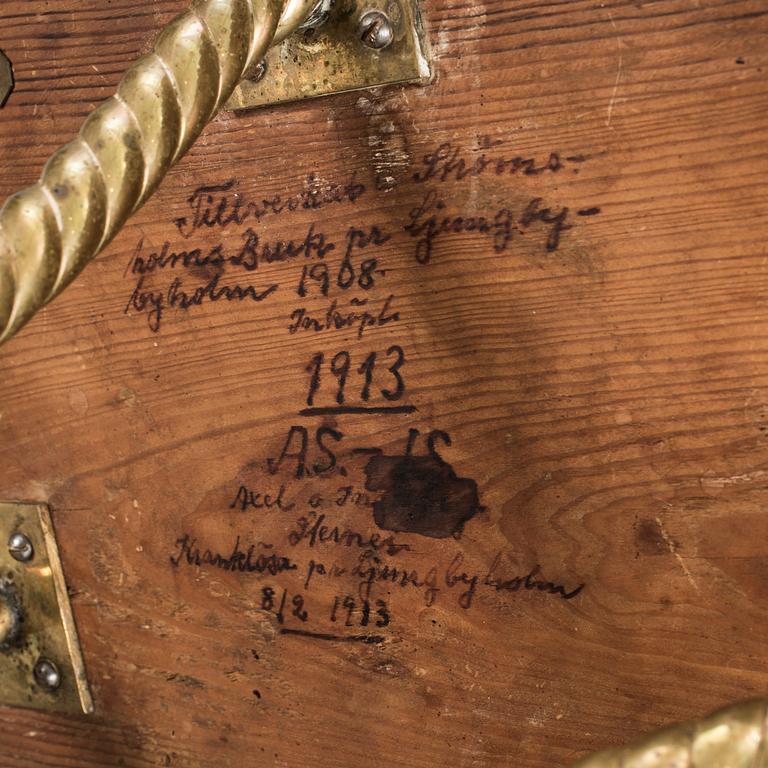 Tillverkat å Ströms-
holms Bruk pr Ljungby-
byholm 1908.
Inköpt
1913
A.S. - I S
Axel o
Kranklösa pr Ljungbyholm
8/2 1913